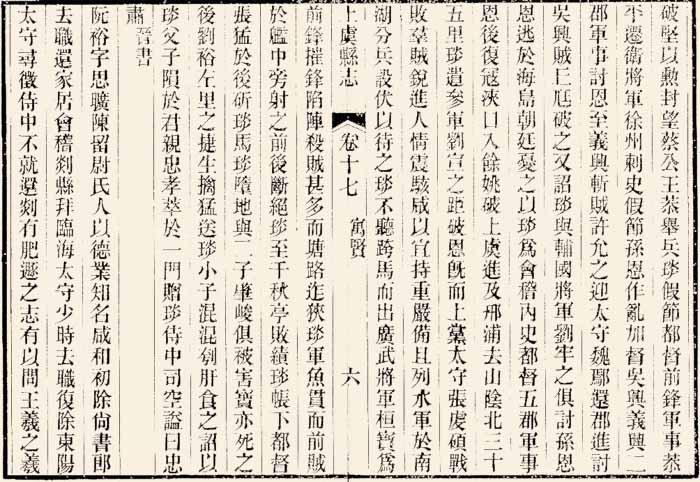 破堅以勲封望蔡公王恭舉兵琰假節都督前鋒軍事恭
平遷衛將軍徐州刺史假節孫恩作亂加督吳興義興二
郡軍事討恩至義興斬賊許允之迎太守魏鄢還郡進討
吳興賊丘尫破之又詔琰與輔國將軍劉牢之俱討孫恩
恩逃於海島朝廷憂之以琰爲會稽內史都督五郡軍事
恩後復寇浹口入餘姚破上虞進及邢浦去山陰北三十
五里琰遣參軍劉宣之距破恩旣而上黨太守張虔碩戰
敗羣賊銳進人情震駭咸以宜持重嚴備且列水軍於南
湖分兵設伏以待之琰不聽跨馬而出廣武將軍桓寶爲
上虞縣志 卷十七 寓賢 六
前鋒摧鋒陷陣殺賊甚多而塘路迮狹琰軍魚貫而前賊
於艦中旁射之前後斷絕琰至千秋亭敗績琰帳下都督
張猛於後斫琰馬琰墮地與二子肇峻俱被害寶亦死之
後劉裕左里之捷生擒猛送琰小子混混刳肝食之詔以
琰父子隕於君親忠孝萃於一門贈琰侍中司空諡曰忠
肅晉書
阮裕字思曠陳留尉氏人以德業知名咸和初除尙書郎
去職還家居會稽剡縣拜臨海太守少時去職復除東陽
太守尋徵侍中不就還剡有肥遯之志有以問王羲之羲